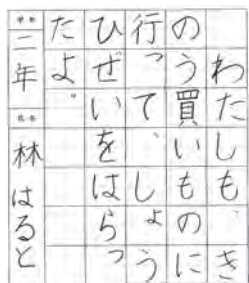 わたしも、き
のう買いものに
行って、しょう
ひぜいをはらっ
たよ。
二年 林はると